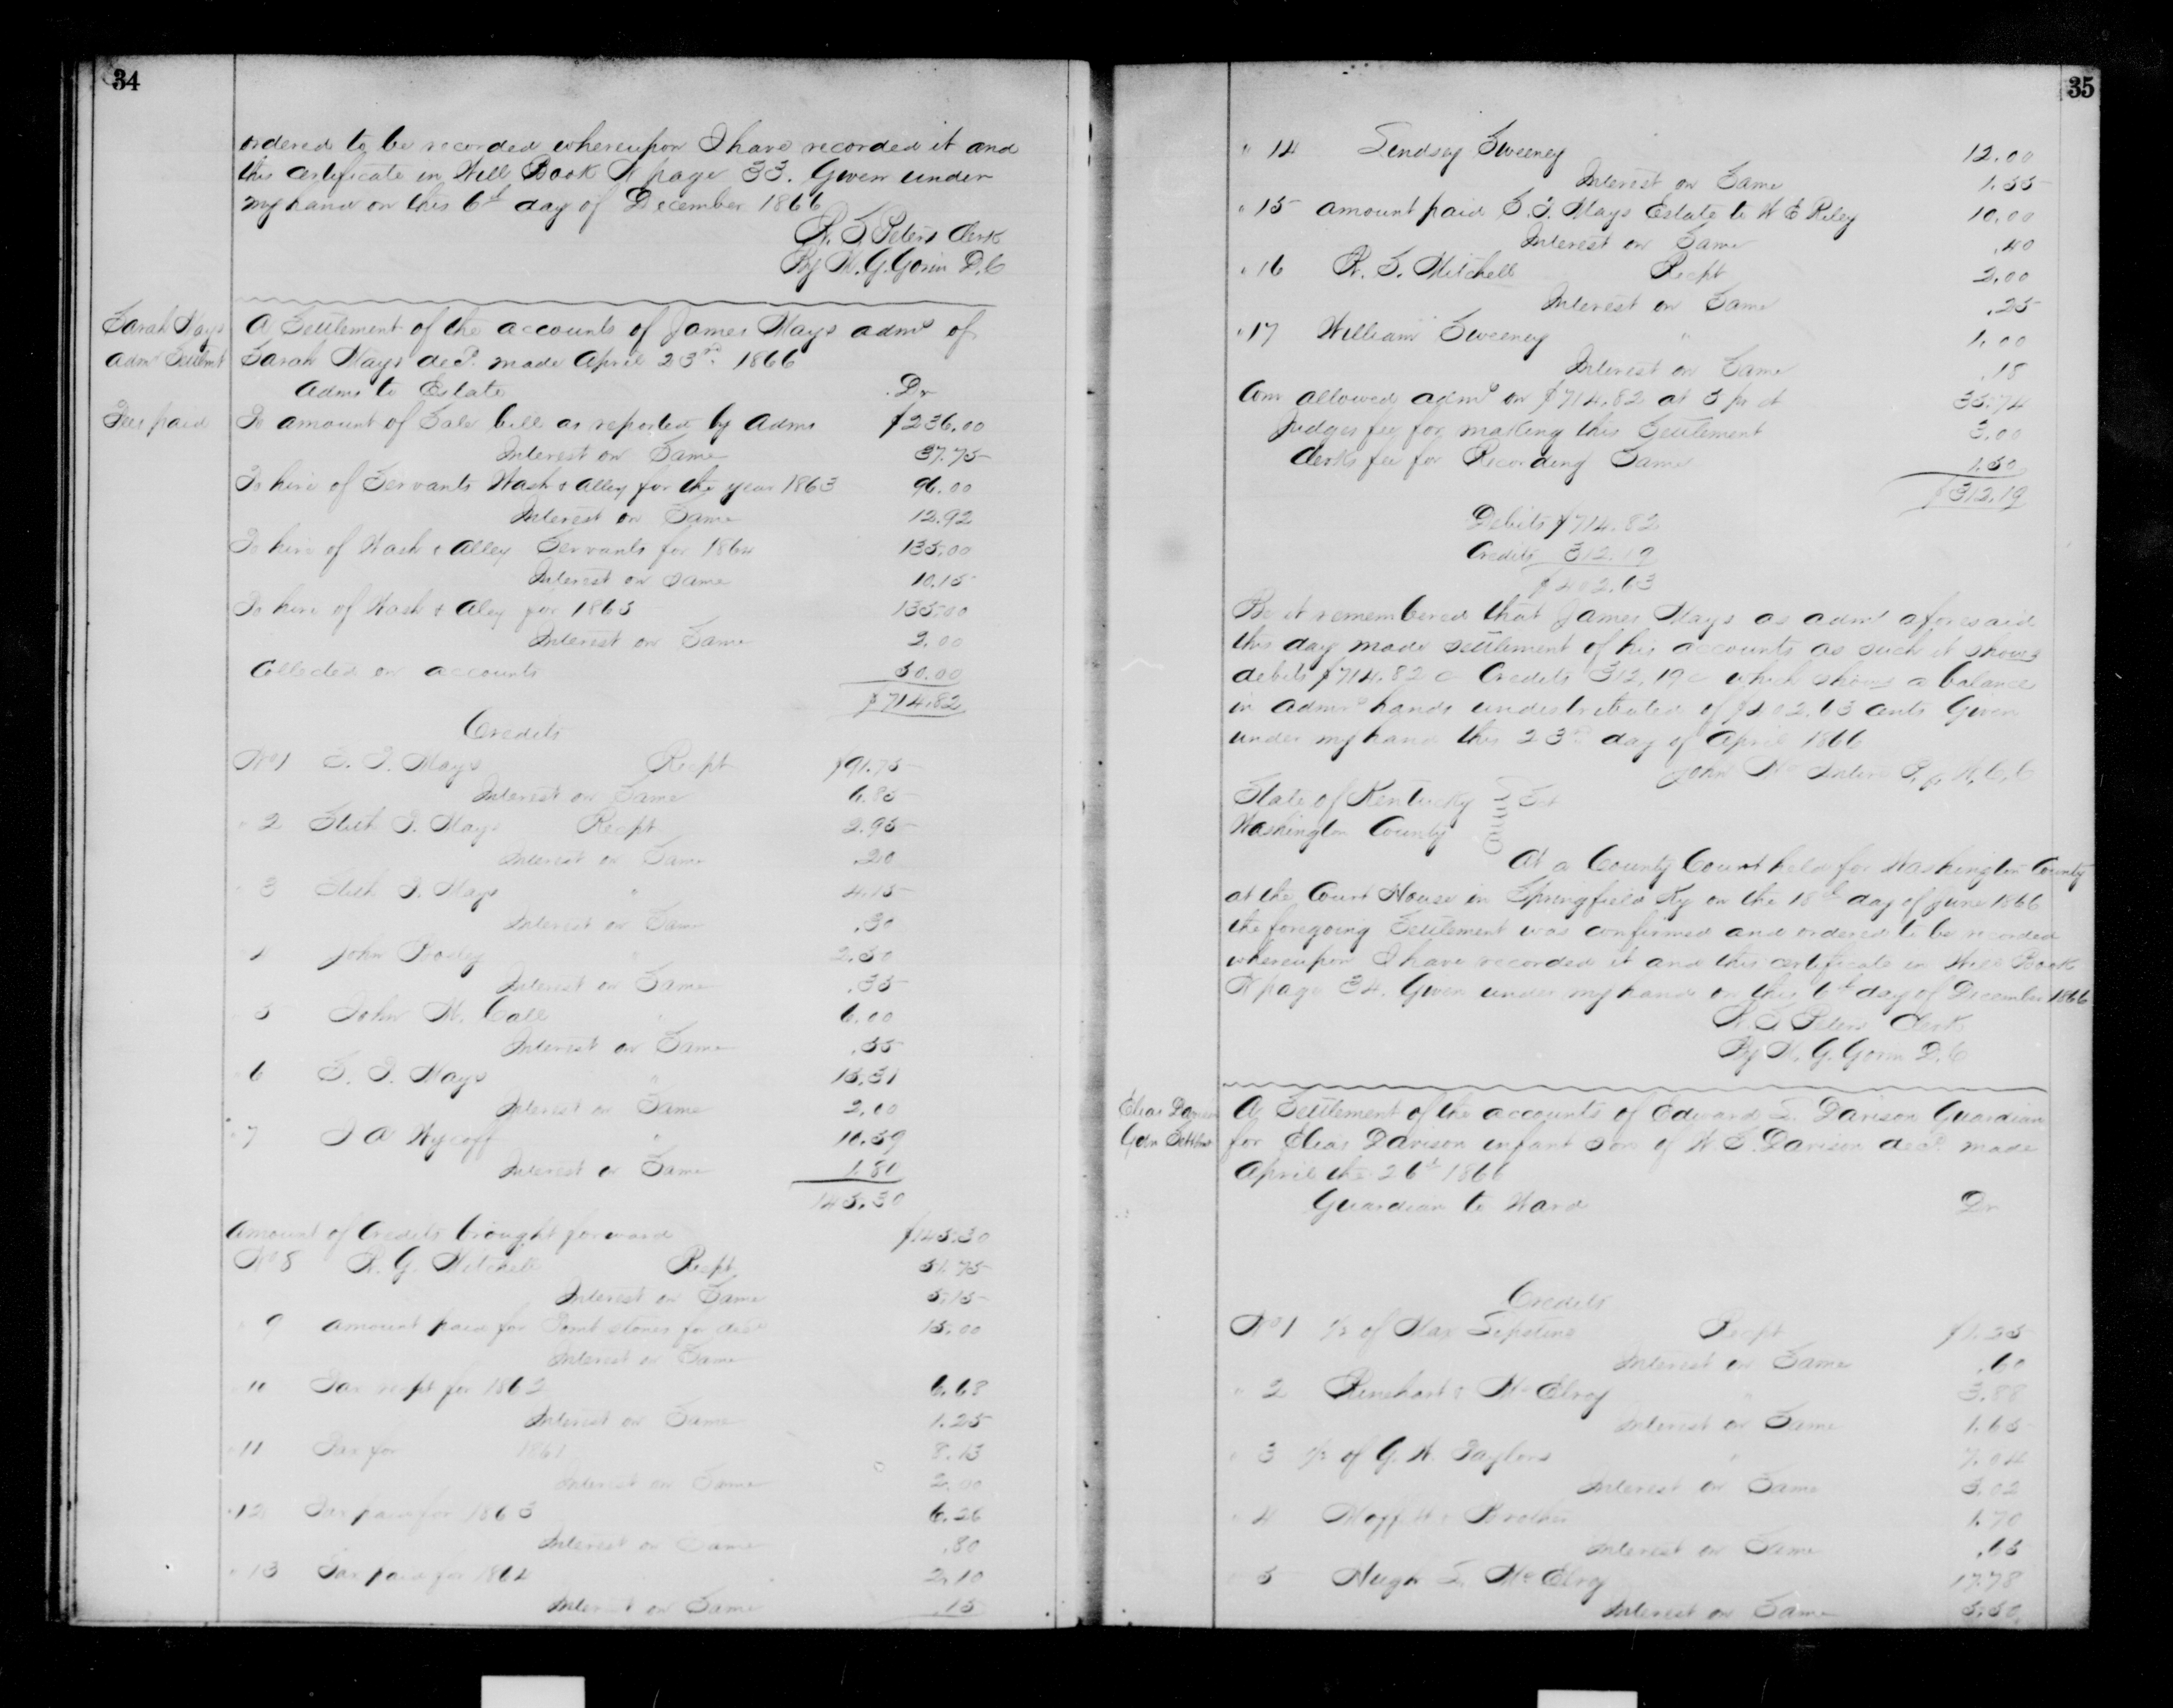 34
ordered to be recorded whereupon I have recorded it and
this certificate in Will Book N page 33. Given under
my hand on this 6th day of December 1866
W. S. Peters Clerk
By W. G. Gorin D.C
Sarah Mays
admr Settlemt
A Settlement of the accounts of James Mays admr of
Sarah Mays decd. made April 23rd. 1866
Admr to Estate Dr
Fees paid
To amount of Sale bill as reported by Admr $236.00
Interest on Same 37.75
To hire of Servants Wash & Alley for the year 1863 96.00
Interest on Same 12.92
To hire of Wash & Alley Servants for 1864 135.00
Interest on same 10.15
To hire of Wash & Aley for 1865 135.00
Interest on Same 2.00
Collected on accounts 50.00
$714.82
Credits
No 1 S. T. Mays Recpt $91.75
Interest on Same 6.85
" 2 T. Mays Recpt 2.95
Interest on Same .20
" 3 T. Mays " 4.15
Interest on Same .30
" 4 John Bosley " 2.50
Interest on Same .35
5 John W. Cale " 6.00
Interest on Same .55
6 S. T. Mays " 15.31
Interest on Same 2.00
" 7 J A Wycoff " 10.59
Interest on Same 1.80
145.30
Amount of Credits brought forward $145.30
No 8 R. G. Mitchell Recpt 51.75
Interest on Same 5.15
" 9 Amount paid for Tomb stones for decd 15.00
Interest on Same
" 10 Tax recpt for 1862 6.68
Interest on Same 1.25
" 11 Tax for 1861 8.13
Interest on Same 2.00
" 12 Tax paid for 1863 6.26
Interest on Same .80
" 13 Tax paid for 1864 2.10
Interest on Same .15
35
" 14 Lindsey Sweeney 12.00
Interest on Same 1.55
" 15 amount paid S. T. Mays Estate to W E Riley 10.00
Interest on Same .40
" 16 R. S. Mitchell Recpt 2.00
Interest on Same .25
" 17 William Sweeney " 1.00
Interest on Same .18
Com allowed admr on $714.82 at 5 pr ct 35.74
Judges fee for making this Settlement 3.00
Clerks fee for Recording Same 1.50
$312.19
Debits $714.82
Credits 312.19
$402.63
Be it remembered that James Mays as admr aforesaid
this day made settlement of his accounts as such it shows
debits $714.82 c Credits 312.19 c which shows a balance
in admrs hands undestributed of $402.63 cents Given
under my hand this 23rd. day of April 1866
John P. J. W. C. C
State of Kentucky Sct
Washington County
At a County Court held for Washington County
at the Court House in Springfield Ky on the 18th day of June 1866
the foregoing Settlement was confirmed and ordered to be recorded
whereupon I have recorded it and this certificate in Will Book
N page 34. Given under my hand on this 6th day of December 1866
W. S. Peters Clerk
By W. G. Gorin D.C
Elias Davison
Gdn Settlmt
A Settlement of the accounts of Edward L. Davison Guardian
for Elias Davison infant son of W. S. Davison decd. made
April the 26th 1866
Guardian to Ward Dr
Credits
No 1 1/2 of Max Recpt $1.25
Interest on Same .60
" 2 Rinehart & McElroy " 3.88
Interest on Same 1.65
" 3 1/2 of G. W. Taylors " 7.04
Interest on Same 3.02
" 4 Brother 1.70
Interest on Same .65
5 Hugh L. McElroy 17.78
Interest on Same 5.50